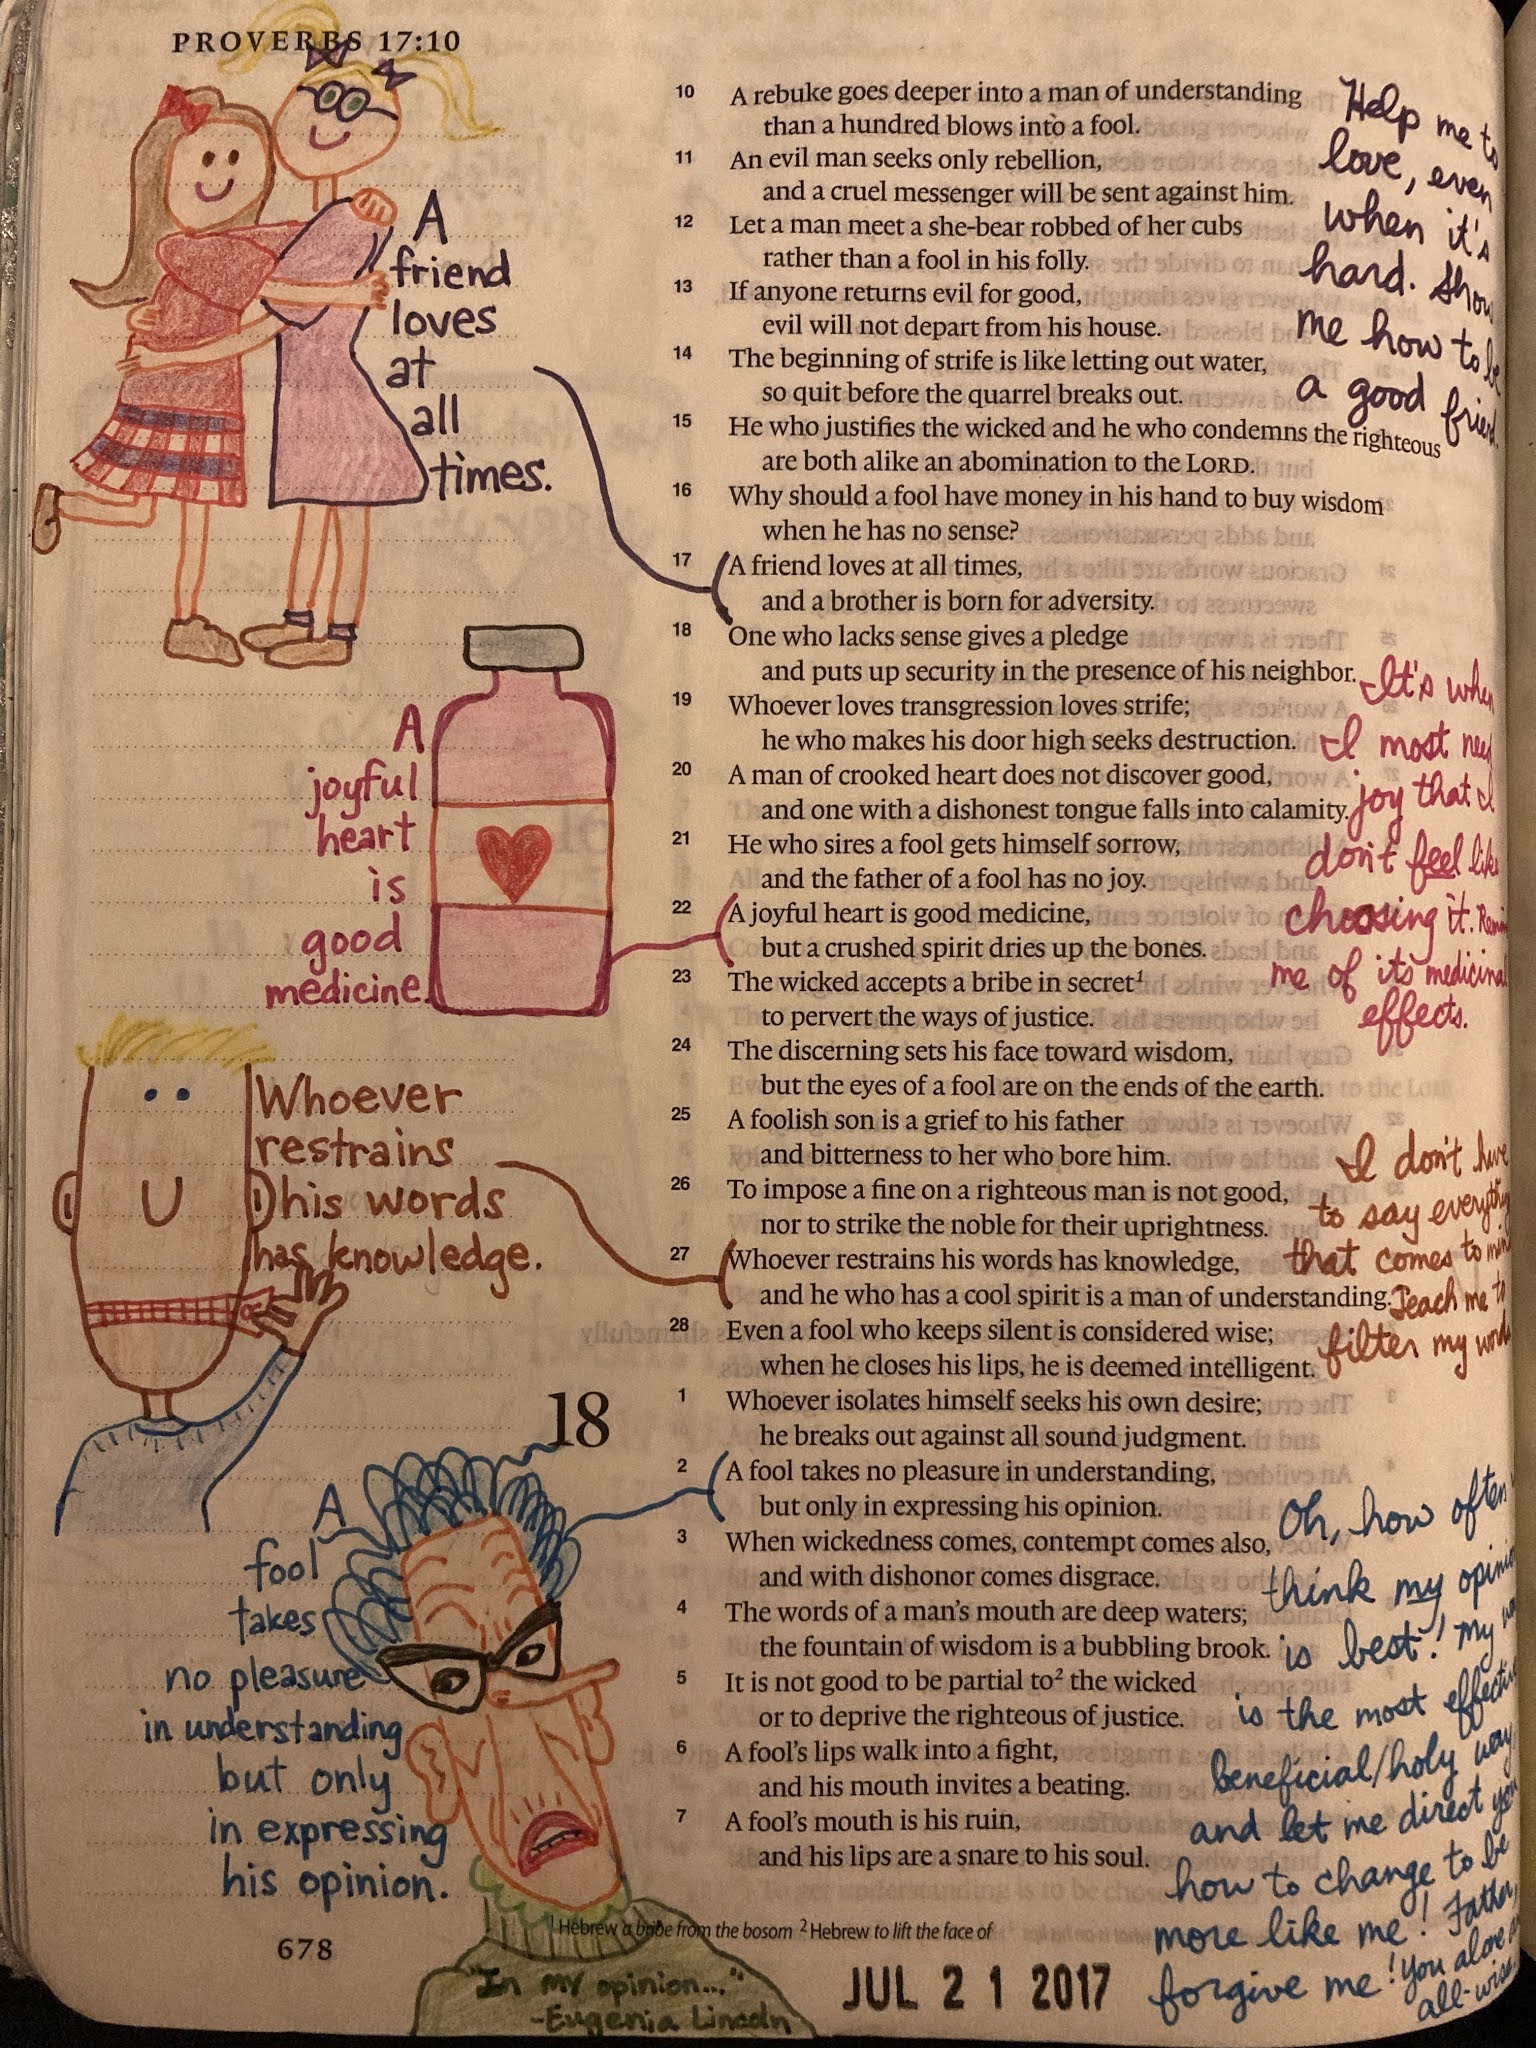 PROVERBS 17:10
A
friend
loves
at
all
times.
A
joyful
heart
is
good
medicine.
Whoever
restrains
his words
has knowledge.
18
A
fool
takes
no pleasure
in understanding
but only
in expressing
his opinion.
678
"In my opinion..."
-Eugenia Lincoln
10 A rebuke goes deeper into a man of understanding
than a hundred blows into a fool.
11 An evil man seeks only rebellion,
and a cruel messenger will be sent against him.
12 Let a man meet a she-bear robbed of her cubs
rather than a fool in his folly.
13 If anyone returns evil for good,
evil will not depart from his house.
14 The beginning of strife is like letting out water,
so quit before the quarrel breaks out.
15 He who justifies the wicked and he who condemns the righteous
are both alike an abomination to the LORD.
16 Why should a fool have money in his hand to buy wisdom
when he has no sense?
17 A friend loves at all times,
and a brother is born for adversity.
18 One who lacks sense gives a pledge
and puts up security in the presence of his neighbor.
19 Whoever loves transgression loves strife;
he who makes his door high seeks destruction.
20 A man of crooked heart does not discover good,
and one with a dishonest tongue falls into calamity.
21 He who sires a fool gets himself sorrow,
and the father of a fool has no joy.
22 A joyful heart is good medicine,
but a crushed spirit dries up the bones.
23 The wicked accepts a bribe in secret1
to pervert the ways of justice.
24 The discerning sets his face toward wisdom,
but the eyes of a fool are on the ends of the earth.
25 A foolish son is a grief to his father
and bitterness to her who bore him.
26 To impose a fine on a righteous man is not good,
nor to strike the noble for their uprightness.
27 Whoever restrains his words has knowledge,
and he who has a cool spirit is a man of understanding.
28 Even a fool who keeps silent is considered wise;
when he closes his lips, he is deemed intelligent.
1 Whoever isolates himself seeks his own desire;
he breaks out against all sound judgment.
2 A fool takes no pleasure in understanding,
but only in expressing his opinion.
3 When wickedness comes, contempt comes also,
and with dishonor comes disgrace.
4 The words of a man's mouth are deep waters;
the fountain of wisdom is a bubbling brook.
5 It is not good to be partial to2 the wicked
or to deprive the righteous of justice.
6 A fool's lips walk into a fight,
and his mouth invites a beating.
7 A fool's mouth is his ruin,
and his lips are a snare to his soul.
1 Hebrew a bribe from the bosom 2 Hebrew to lift the face of
JUL 21 2017
Help me to
love, even
when it's
hard. Show
me how to be
a good friend.
It's when
I most need
joy that I
don't feel like
choosing it.
me of its medicinal
effects.
I don't have
to say everything
that comes to mind
Teach me to
filter my words
Oh, how often
think my opinion
is best! My way
is the most effective
beneficial/holy way
and let me direct you
how to change to be
more like me! Father,
forgive me! You alone
all-wise.